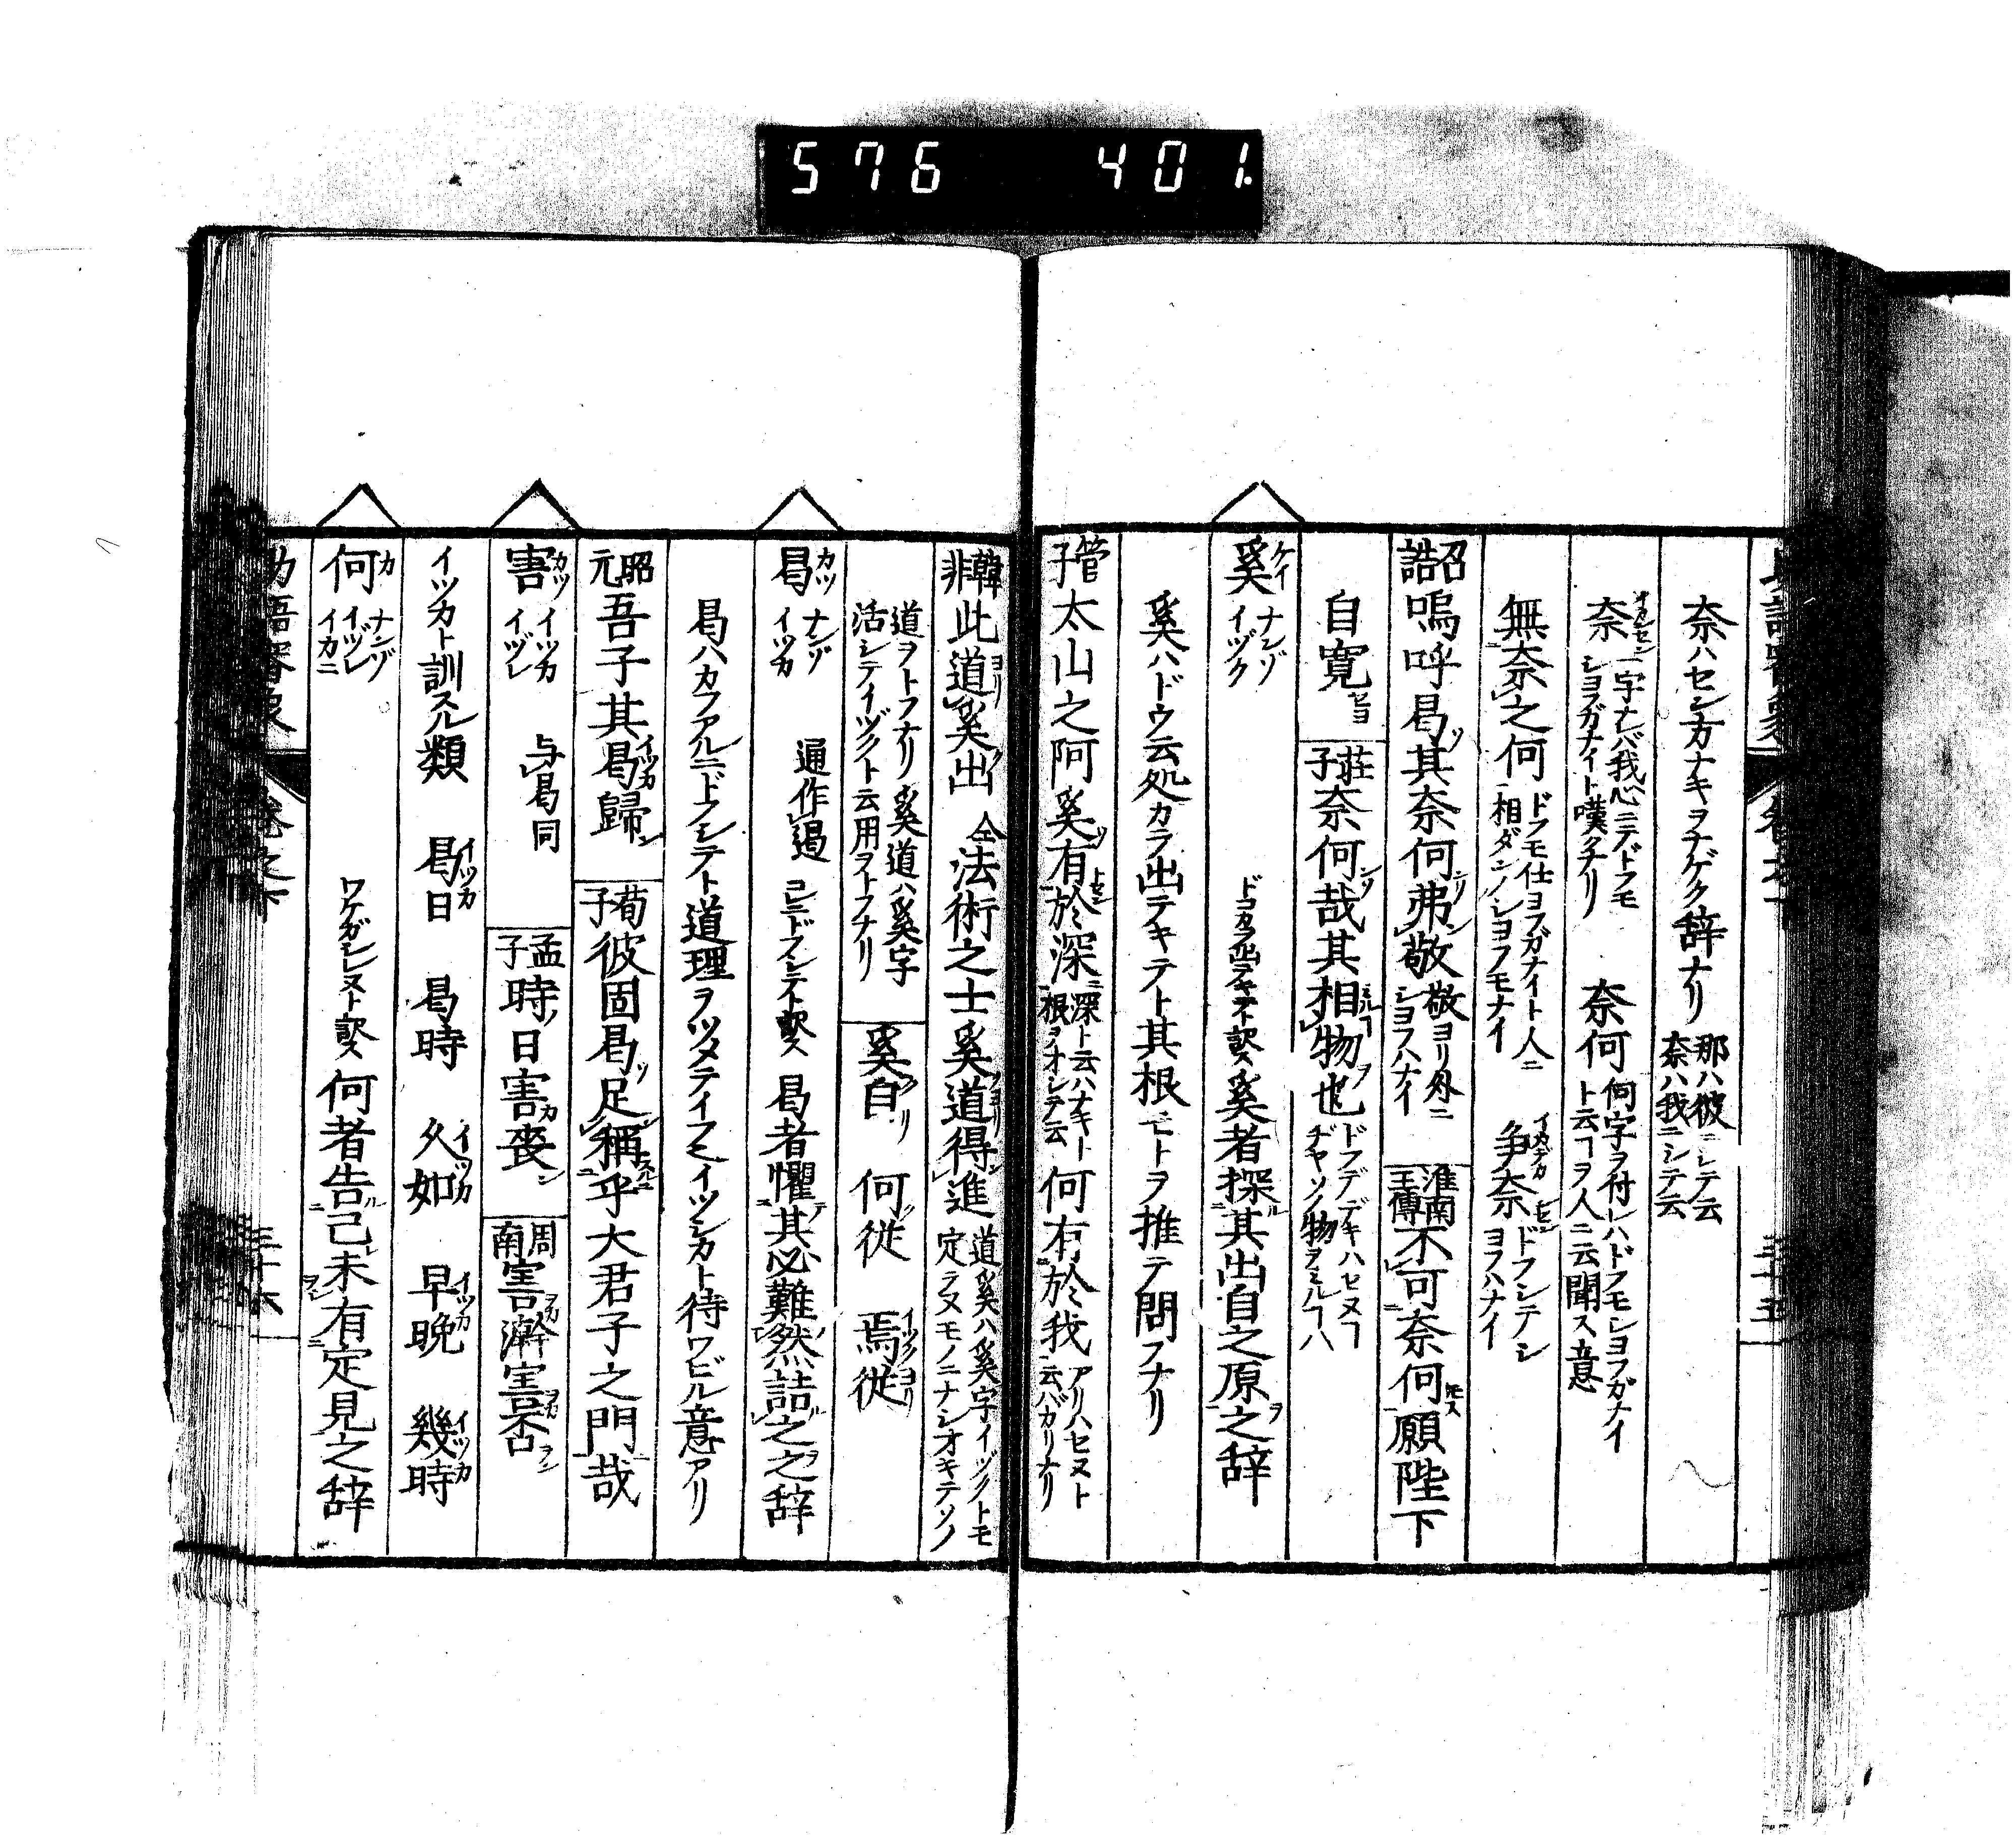 576 401.
奈ハセンカナキヲナゲク辞ナリ 那ハ彼ニシテ云 奈ハ我ニシテ云
奈 一字ナレバ我心ニテドフモ シヨフガナイト嘆クナリ 奈何 何字ヲ付レハドフモシヨフガナイ ト云ヿヲ人ニ云聞ス意
無奈之何 ドフモ仕ヨフガナイト人ニ 相ダンノシヨフモナイ 争奈 ドフシテシ ヨフハナイ
召誥 嗚呼曷其奈何弗敬 敬ヨリ外ニ シヨフハナイ 淮南王傳 不可奈何願陛下
自寛 荘子 奈何哉其相物也 ドフデデキハセヌヿ ヂヤソノ物ヲミルヿハ
奚 ケイ ナンゾ イヅク ドコカラ出テキテト訳ス 奚者探其出自之原之辞
奚ハドウ云処カラ出テキテト其根モトヲ推テ問フナリ
管子 太山之阿奚有於深 深ト云ハナキト 根ヲオシテ云 何有於我 アリハセヌト 云バカリナリ
韓非 此道奚出 仝 法術之士奚道得進 道奚ハ奚字イヅクトモ 定ラヌモノニナシオキテソノ
道ヲトフナリ奚道ハ奚字 活シテイヅクト云用ヲトフナリ 奚自 何従 焉従
曷 カツ ナンゾ イツカ 通作遏 コレニドフシテト訳ス 曷者懼其必難然詰之之辞
曷ハカフアルニドフシテト道理ヲツメテイフ イツシカト待ワビル意アリ
昭元 吾子其曷歸 荀子 彼固曷足稱乎大君子之門哉
害 カツ イツカ イヅレ 与曷同 孟子 時日害喪 周南 害澣害否
イツカト訓スル類 曷日 曷時 久如 早晩 幾時
何 カ ナンゾ イヅレ イカニ ワケガシレヌト訳ス 何者告己未有定見之辞